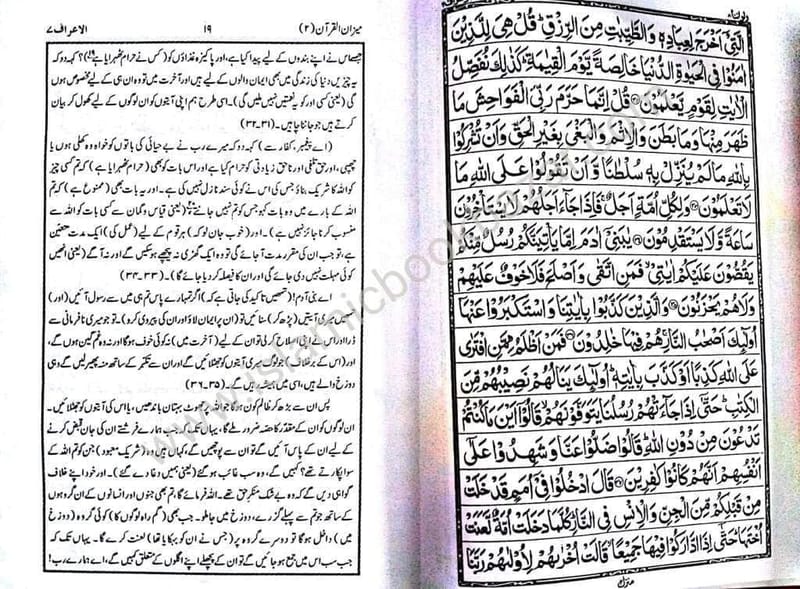 الَّتِیْۤ اَخْرَجَ لِعِبَادِهٖ وَالطَّیِّبٰتِ مِنَ الرِّزْقِؕ قُلْ هِیَ لِلَّذِیْنَ
اٰمَنُوْا فِی الْحَیٰوةِ الدُّنْیَا خَالِصَةً یَّوْمَ الْقِیٰمَةِؕ كَذٰلِكَ نُفَصِّلُ
الْاٰیٰتِ لِقَوْمٍ یَّعْلَمُوْنَ قُلْ اِنَّمَا حَرَّمَ رَبِّیَ الْفَوَاحِشَ مَا
ظَهَرَ مِنْهَا وَمَا بَطَنَ وَالْاِثْمَ وَالْبَغْیَ بِغَیْرِ الْحَقِّ وَاَنْ تُشْرِكُوْا
بِاللّٰهِ مَا لَمْ یُنَزِّلْ بِهٖ سُلْطٰنًا وَّاَنْ تَقُوْلُوْا عَلَی اللّٰهِ مَا
لَا تَعْلَمُوْنَ وَلِكُلِّ اُمَّةٍ اَجَلٌۚ فَاِذَا جَآءَ اَجَلُهُمْ لَا یَسْتَاْخِرُوْنَ
سَاعَةً وَّلَا یَسْتَقْدِمُوْنَ یٰبَنِیْۤ اٰدَمَ اِمَّا یَاْتِیَنَّكُمْ رُسُلٌ مِّنْكُمْ
یَقُصُّوْنَ عَلَیْكُمْ اٰیٰتِیْۙ فَمَنِ اتَّقٰی وَاَصْلَحَ فَلَا خَوْفٌ عَلَیْهِمْ
وَلَا هُمْ یَحْزَنُوْنَ وَالَّذِیْنَ كَذَّبُوْا بِاٰیٰتِنَا وَاسْتَكْبَرُوْا عَنْهَاۤ
اُولٰٓئِكَ اَصْحٰبُ النَّارِۚ هُمْ فِیْهَا خٰلِدُوْنَ فَمَنْ اَظْلَمُ مِمَّنِ افْتَرٰی
عَلَی اللّٰهِ كَذِبًا اَوْ كَذَّبَ بِاٰیٰتِهٖؕ اُولٰٓئِكَ یَنَالُهُمْ نَصِیْبُهُمْ مِّنَ
الْكِتٰبِؕ حَتّٰۤی اِذَا جَآءَتْهُمْ رُسُلُنَا یَتَوَفَّوْنَهُمْۙ قَالُوْۤا اَیْنَ مَا كُنْتُمْ
تَدْعُوْنَ مِنْ دُوْنِ اللّٰهِؕ قَالُوْا ضَلُّوْا عَنَّا وَشَهِدُوْا عَلٰۤی
اَنْفُسِهِمْ اَنَّهُمْ كَانُوْا كٰفِرِیْنَ قَالَ ادْخُلُوْا فِیْۤ اُمَمٍ قَدْ خَلَتْ
مِنْ قَبْلِكُمْ مِّنَ الْجِنِّ وَالْاِنْسِ فِی النَّارِؕ كُلَّمَا دَخَلَتْ اُمَّةٌ لَّعَنَتْ
اُخْتَهَاؕ حَتّٰۤی اِذَا ادَّارَكُوْا فِیْهَا جَمِیْعًاۙ قَالَتْ اُخْرٰىهُمْ لِاُوْلٰىهُمْ رَبَّنَا
منزل
میزان القرآن (۲) ۱۹ الاعراف ۷
جسے اس نے اپنے بندوں کے لیے پیدا کیا ہے، اور پاکیزہ غذاؤں کو (کس نے حرام ٹھہرایا ہے)؟ کہہ دو کہ
یہ چیزیں دنیا کی زندگی میں بھی ایمان والوں کے لیے ہیں اور آخرت میں تو وہ ان ہی کے لیے مخصوص ہوں
گی (یعنی کسی اور کو یہ نعمتیں نہیں ملیں گی)۔ اسی طرح ہم اپنی آیتوں کو ان لوگوں کے لیے کھول کر بیان
کرتے ہیں جو جاننا چاہیں۔ (۳۱۔۳۲)
(اے پیغمبر، کفار سے) کہہ دو کہ میرے رب نے بے حیائی کی باتوں کو خواہ وہ کھلی ہوں یا
چھپی، اور حق تلفی اور ناحق زیادتی کو حرام کیا ہے اور اس بات کو بھی (حرام ٹھہرایا ہے) کہ تم کسی چیز
کو اللہ کا شریک بناؤ جس کی اس نے کوئی سند نازل نہیں کی ہے۔ اور یہ بات بھی (ممنوع ہے) کہ تم
اللہ کے بارے میں وہ بات کہو جس کو تم نہیں جانتے (یعنی قیاس و گمان سے کسی بات کو اللہ سے
منسوب کرنا جائز نہیں ہے)۔ اور (خوب جان لو کہ) ہر قوم کے لیے (عمل کی) ایک مدت متعین
ہے، تو جب ان کی مقررہ مدت آ جائے گی تو وہ ایک گھڑی نہ پیچھے ہو سکیں گے اور نہ آگے (یعنی انھیں
کوئی مہلت نہیں دی جائے گی اور ان کا فیصلہ کر دیا جائے گا)۔ (۳۳۔۳۴)
اے بنی آدم! (تمھیں تاکید کی جاتی ہے کہ) اگر تمھارے پاس تم ہی میں سے رسول آئیں (اور)
تمھیں میری آیتیں (پڑھ کر) سنائیں تو (ان پر ایمان لاؤ اور ان کی پیروی کرو)۔ تو جو میری نافرمانی سے
ڈرا اور اس نے اپنی اصلاح کر لی تو ان کے لیے (آخرت میں) نہ کوئی خوف ہوگا اور نہ وہ غم گین ہوں گے،
اور (اس کے برخلاف) جو لوگ میری آیتوں کو جھٹلائیں گے اور ان سے تکبر کے ساتھ منہ پھیر لیں گے وہی
دوزخ والے ہیں، اسی میں ہمیشہ رہیں گے۔ (۳۵۔۳۶)
پس ان سے بڑھ کر ظالم کون ہوگا جو اللہ پر جھوٹ بہتان باندھیں، یا اس کی آیتوں کو جھٹلائیں۔
ان لوگوں کو ان کے مقدر کا حصہ ضرور ملے گا، یہاں تک کہ جب ہمارے فرشتے ان کی جان قبض کرنے
کے لیے ان کے پاس آئیں گے تو ان سے پوچھیں گے، کہاں ہیں وہ (شریک معبود) جن کو تم اللہ کے
سوا پکارتے تھے؟ کہیں گے، وہ سب غائب ہو گئے (یعنی ہمیں دغا دے گئے)۔ اور خود اپنے خلاف
گواہی دیں گے کہ وہ بے شک منکر حق تھے۔ اللہ فرمائے گا، تم بھی جنوں اور انسانوں کے ان گروہوں
کے ساتھ جو تم سے پہلے گزرے، دوزخ میں جا ملو۔ جب بھی (گم راہ لوگوں کا) کوئی گروہ (دوزخ
میں) داخل ہوگا تو دوسرے گروہ پر (جس نے ان کو بہکایا تھا) لعنت کرے گا۔ یہاں تک کہ
جب سب اس میں جمع ہو جائیں گے تو ان کے پچھلے اپنے اگلوں کے متعلق کہیں گے، اے ہمارے رب!